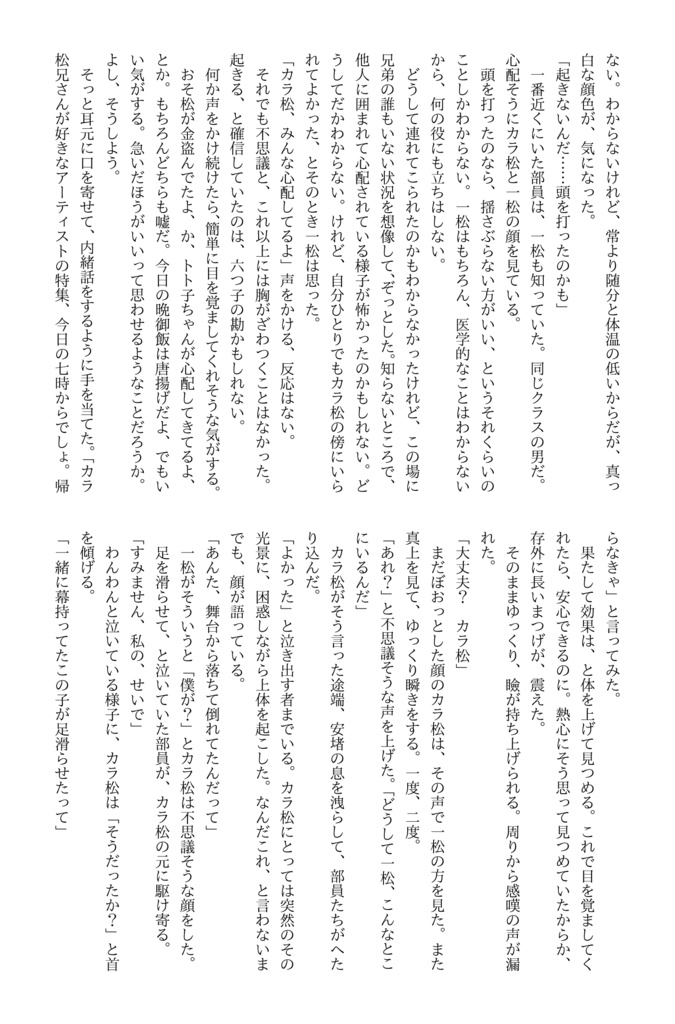 ない。わからないけれど、常より随分と体温の低いからだが、真っ
白な顔色が、気になった。
「起きないんだ……頭を打ったのかも」
一番近くにいた部員は、一松も知っていた。同じクラスの男だ。
心配そうにカラ松と一松の顔を見ている。
頭を打ったのなら、揺さぶらない方がいい、というそれくらいの
ことしかわからない。一松はもちろん、医学的なことはわからない
から、何の役にも立ちはしない。
どうして連れてこられたのかもわからなかったけれど、この場に
兄弟の誰もいない状況を想像して、ぞっとした。知らないところで、
他人に囲まれて心配されている様子が怖かったのかもしれない。ど
うしてだかわからない。けれど、自分ひとりでもカラ松の傍にいら
れてよかった、とそのとき一松は思った。
「カラ松、みんな心配してるよ」声をかける、反応はない。
それでも不思議と、これ以上には胸がざわつくことはなかった。
起きる、と確信していたのは、六つ子の勘かもしれない。
何か声をかけ続けたら、簡単に目を覚ましてくれそうな気がする。
おそ松が金盗んでたよ、か、トト子ちゃんが心配してきてるよ、
とか。もちろんどちらも嘘だ。今日の晩御飯は唐揚げだよ、でもい
い気がする。急いだほうがいいって思わせるようなことだろうか。
よし、そうしよう。
そっと耳元に口を寄せて、内緒話をするように手を当てた。「カラ
松兄さんが好きなアーティストの特集、今日の七時からでしょ。帰
らなきゃ」と言ってみた。
果たして効果は、と体を上げて見つめる。これで目を覚ましてく
れたら、安心できるのに。熱心にそう思って見つめていたからか、
存外に長いまつげが、震えた。
そのままゆっくり、瞼が持ち上げられる。周りから感嘆の声が漏
れた。
「大丈夫？　カラ松」
まだぼおっとした顔のカラ松は、その声で一松の方を見た。また
真上を見て、ゆっくり瞬きをする。一度、二度。
「あれ？」と不思議そうな声を上げた。「どうして一松、こんなとこ
にいるんだ」
カラ松がそう言った途端、安堵の息を洩らして、部員たちがへた
り込んだ。
「よかった」と泣き出す者までいる。カラ松にとっては突然のその
光景に、困惑しながら上体を起こした。なんだこれ、と言わないま
でも、顔が語っている。
「あんた、舞台から落ちて倒れてたんだって」
一松がそういうと「僕が？」とカラ松は不思議そうな顔をした。
足を滑らせて、と泣いていた部員が、カラ松の元に駆け寄る。
「すみません、私の、せいで」
わんわんと泣いている様子に、カラ松は「そうだったか？」と首
を傾げる。
「一緒に幕持ってたこの子が足滑らせたって」